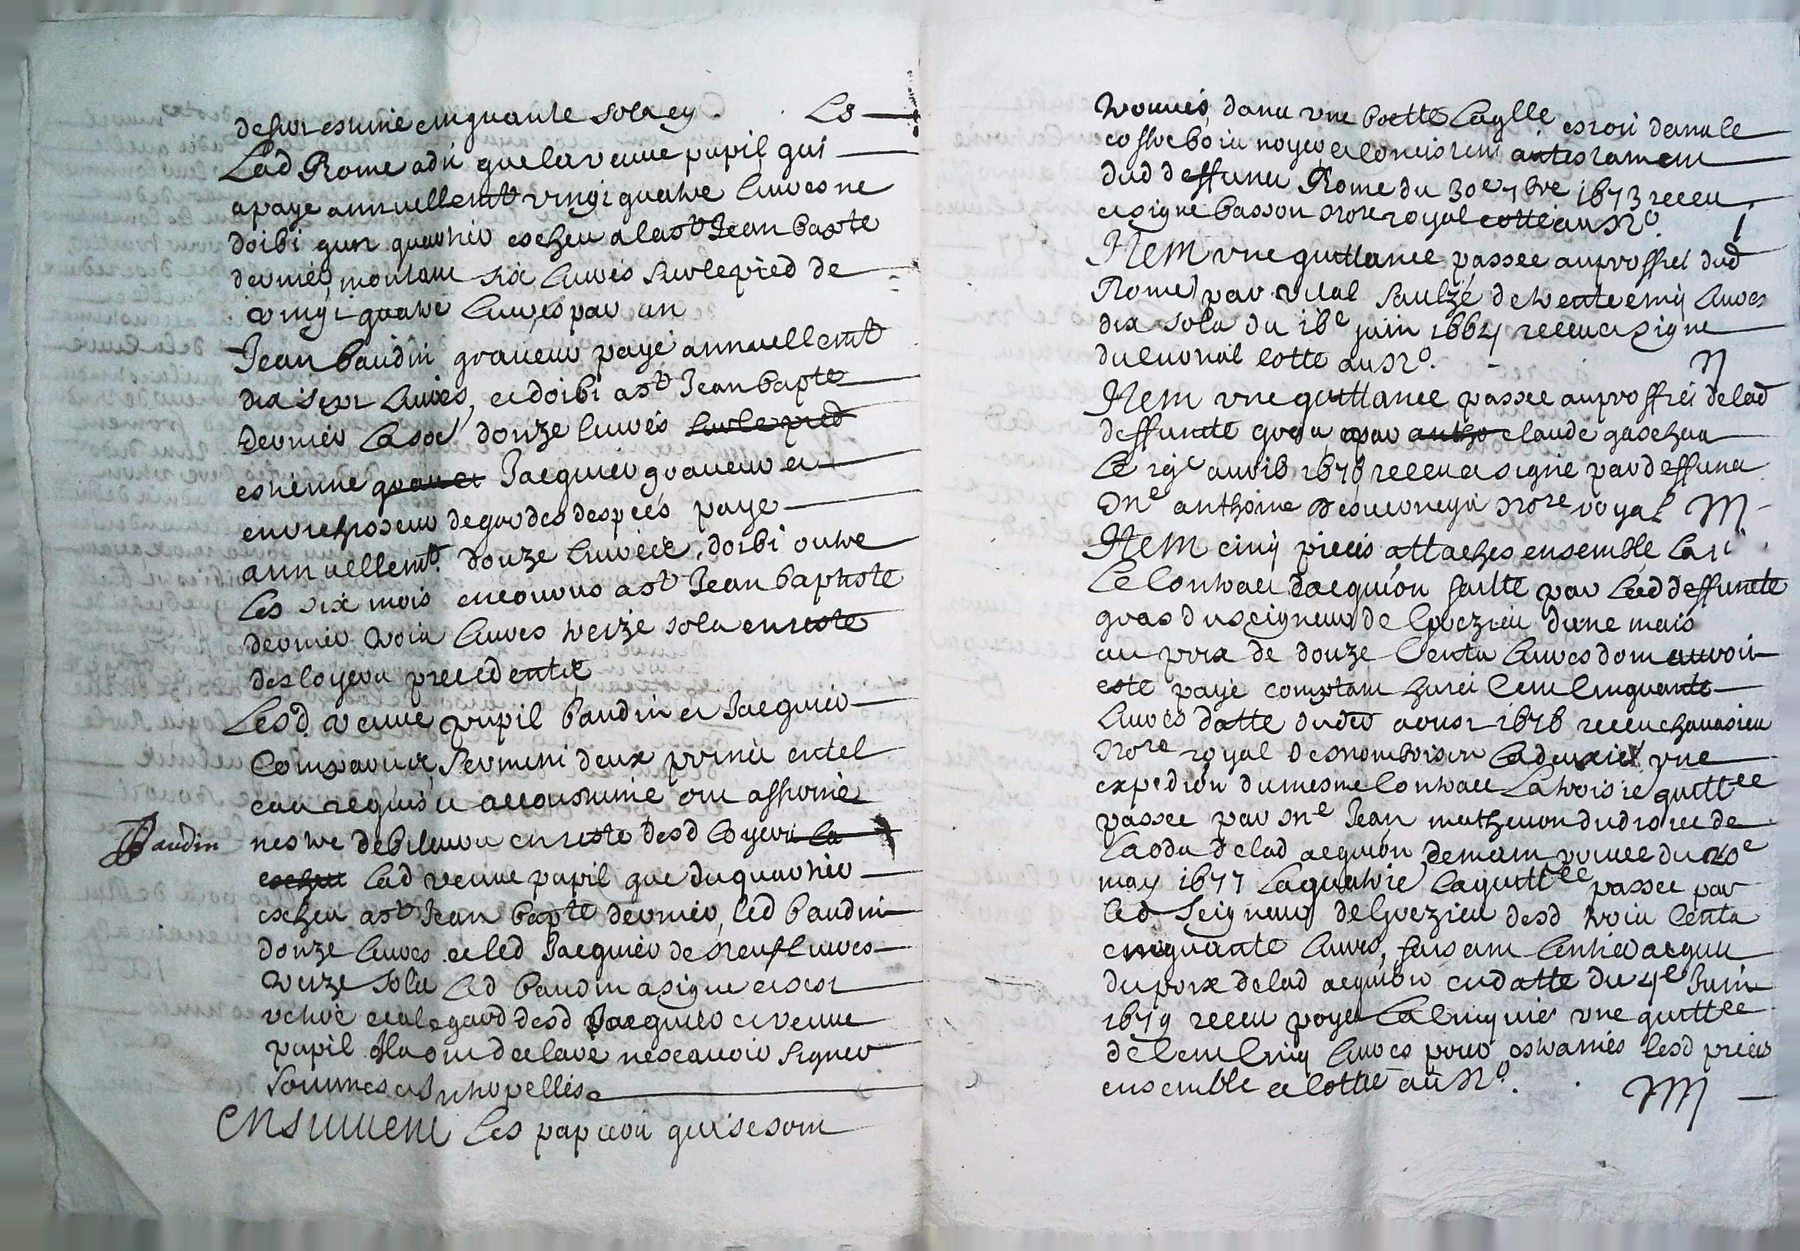 dehors estimé cinquante sols cy . L s
Lad Rome a dit que la veuve pupil qui
a paye annuellemt vingt quatre livres ne
doibt qun quartier escheu a la st Jean bapte
dernier, montant six livres sur le pied de
vingt quatre livres par an
Jean baudin graveur paye annuellemt
dix sept livres, et doibt a st Jean bapte
dernier la so de douze livres sur le pied
estienne graver Jacquier graveur et
entreposeur de gardes despées paye
annuellemt. douze livres et doibt outre
les six mois encourus a st Jean baptiste
dernier trois livres treize sols en reste
des loyers precedents
Lesd veuve pupil baudin et Jacquier
comparants serment deux prins en tel
cas requis et accoustumé ont affirmé
Baudin nestre debiteurs en reste desd loyers la
escheu lad veuve pupil que du quartier
escheu a st Jean bapte dernier, led baudin
douze livres et led Jacquier de neuf livres
treize sols led baudin a signé et sest
retiré et a legard desd Jacquier et veuve
pupil ils ont declaré ne scavoir signer
sommés et interpellés
Ensuivent les papiers qui se sont
trouvés, dans une boette laqlle estoit dans le
coffre bois noyer et concistent au testament
dud deffunt Rome du 30e 7bre 1673 receu
et signe basson nore royal cotte au No. I
Item une quittance passee au proffict dud
Rome par vital Saulzé de trente cinq livres
dix sols du 16e juin 1664 receu et signe
du cotte au No. II
Item une quittance passee au proffict de lad
deffuncte gras par antho claude gaschau
le avril 1678 receu et signé par deffunct
Me anthoine nore royal III
Item cinq pieces attachés ensemble la 1re
le contract dacquion faitte par led deffuncte
gras du seigneur de d'une mais
au prix de douze cents livres dont auroit
esté payé comptant huict cent cinquante
livres datte du aoust 1676 receu chavasieu
nore royal de la deuxie une
expedion du mesme contract la troisie quittce
passee par Me Jean matheron du droict de
laods de lad acquion du 20e
may 1677 la quatrie la quittce passee par
led seigneur de desd trois cents
cinquante livres, faisant lentier acquit
du prix de lad acquion en datte du 4e Juin
1679 receu la cinquie une quittce
de cent cinq livres pour lesd pieces
ensemble et cottés au No. IIII